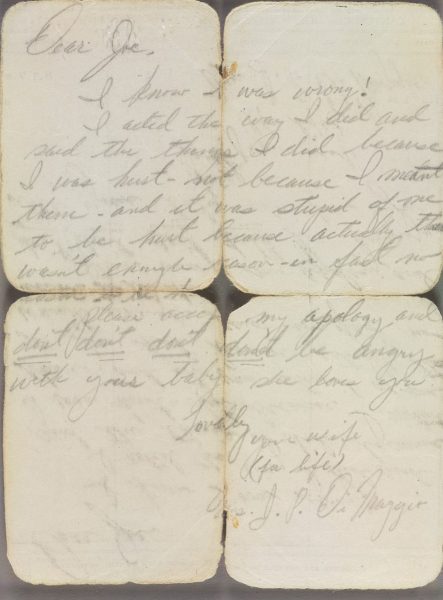 Dear Joe,
I know I was wrong!
I acted the way I did and
said the things I did because
I was hurt - not because I meant
them - and it was stupid of me
to be hurt because actually there
wasn't enough reason - in fact no
please accept my apology and
don't don't don't don't be angry
with your baby she loves you
Lovingly
your wife
(for life)
Mrs. J. P. Di Maggio